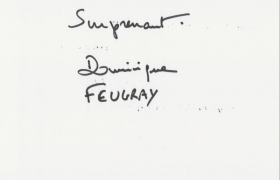 Surprenant.
Dominique
FEUGRAY